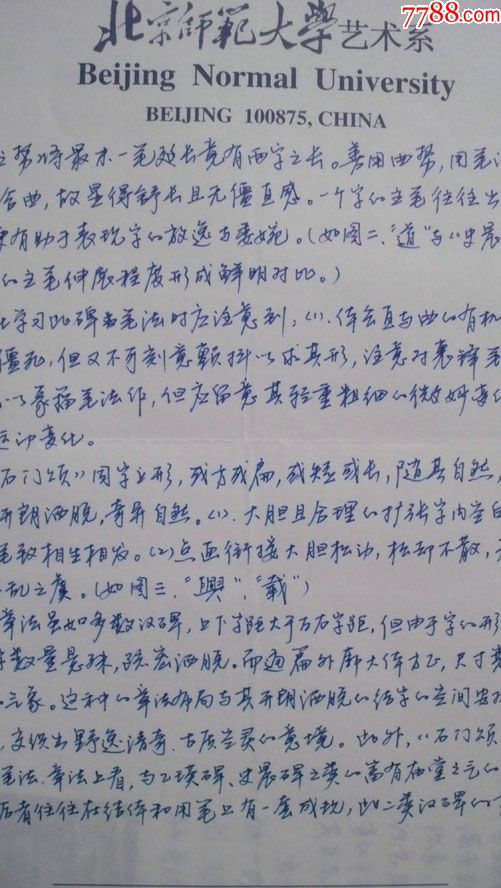 7788.com
北京師範大學艺术系
Beijing Normal University
BEIJING 100875, CHINA
之势，将最末一笔延长竟有两字之长。善用曲势，用笔
合曲，故显得舒长且无僵直感。一个字的主笔往往
有助于表现字的放逸与委婉。（如图二、“道”与《史晨
的主笔伸展程度形成鲜明对比。）
学习此碑笔法时应注意到，(1).体会直与曲的有机
僵死，但又不可刻意颤抖以求其形，注意对裹锋
以篆籀笔法作，但应留意其轻重粗细的微妙变化
运动变化。
石门颂》因字立形，或方或扁，或短或长，随其自然，
开朗洒脱，奇异自然。(1).大胆且合理的扩张字内空白
笔致相生相发。(2)点画衔接大胆松动，松却不散，
乱之虞。（如图三.“興”、“載”）
章法虽如多数汉碑，上下字距大于左右字距，但由于字的形
数量悬殊，疏宕洒脱。而通篇外廓大体方正，尺寸
之象。这种的章法布局与其开朗洒脱的结字的空间安
，交织出野逸清奇、古质空灵的意境。此外，《石门颂
笔法、章法上看，与乙瑛碑、史晨碑之类的富有庙堂之气的
后者往往在结体和用笔上有一套成规，此二类汉碑的